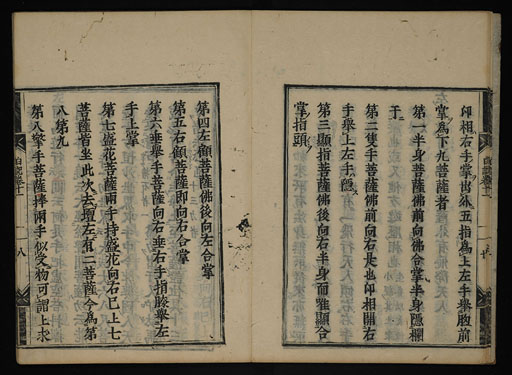 印相右手掌出外五指為上左手舉腹前
掌為下九菩薩者
第一半身菩薩佛前向佛合掌半身隱欄
于
第二雙手菩薩佛前向右是也印相開右
手舉上左手隱
第三顯指菩薩佛後向右半身而唯顯合
掌指頭
第四左顧菩薩佛後向左合掌
第五右顧菩薩即向右合掌
第六垂舉手菩薩向右垂右手指脥舉左
手上掌
第七盛花菩薩兩手持盛花向右已上七
菩薩皆坐此次去壇左有二菩薩今為第
八第九
第八擎手菩薩捧兩手似受物可謂上求
八